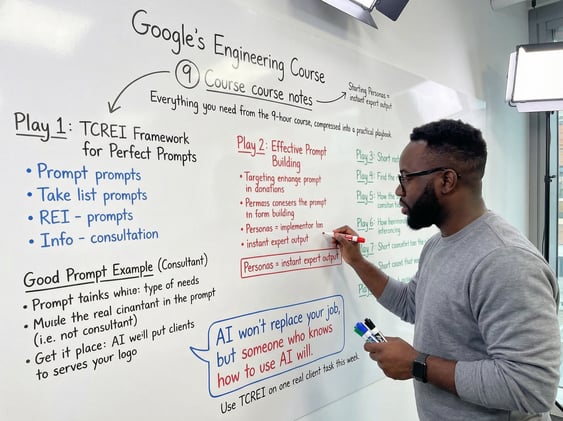 Google's Engineering Course
9 Course course notes
Starting Personas =
instant expert output
Everything you need from the 9-hour course, compressed into a practical playbook
Play 1: TCREI Framework
for Perfect Prompts
• Prompt prompts
• Take list prompts
• REI – prompts
• Info – consultation
Good Prompt Example (Consultant)
• Prompt tainks whino: type of needs
• Muıde the real cinantant in the prompt
(i.e. not consultant)
• Get it place: AI we'll put clients
to serves your logo
Play 2: Effective Prompt
Building
• Targeting enhange prompt
in donations
• Permass conesers the prompt
in form building
• Personas = implementor
• instant expert output
Personas = instant expert output
Play 3: Short
Play 4: Find the
Play 5: How the
Play 6: How
Play 7: Short
Short
AI won't replace your job,
but someone who knows
how to use AI will.
Use TCREI on one real client task this week.